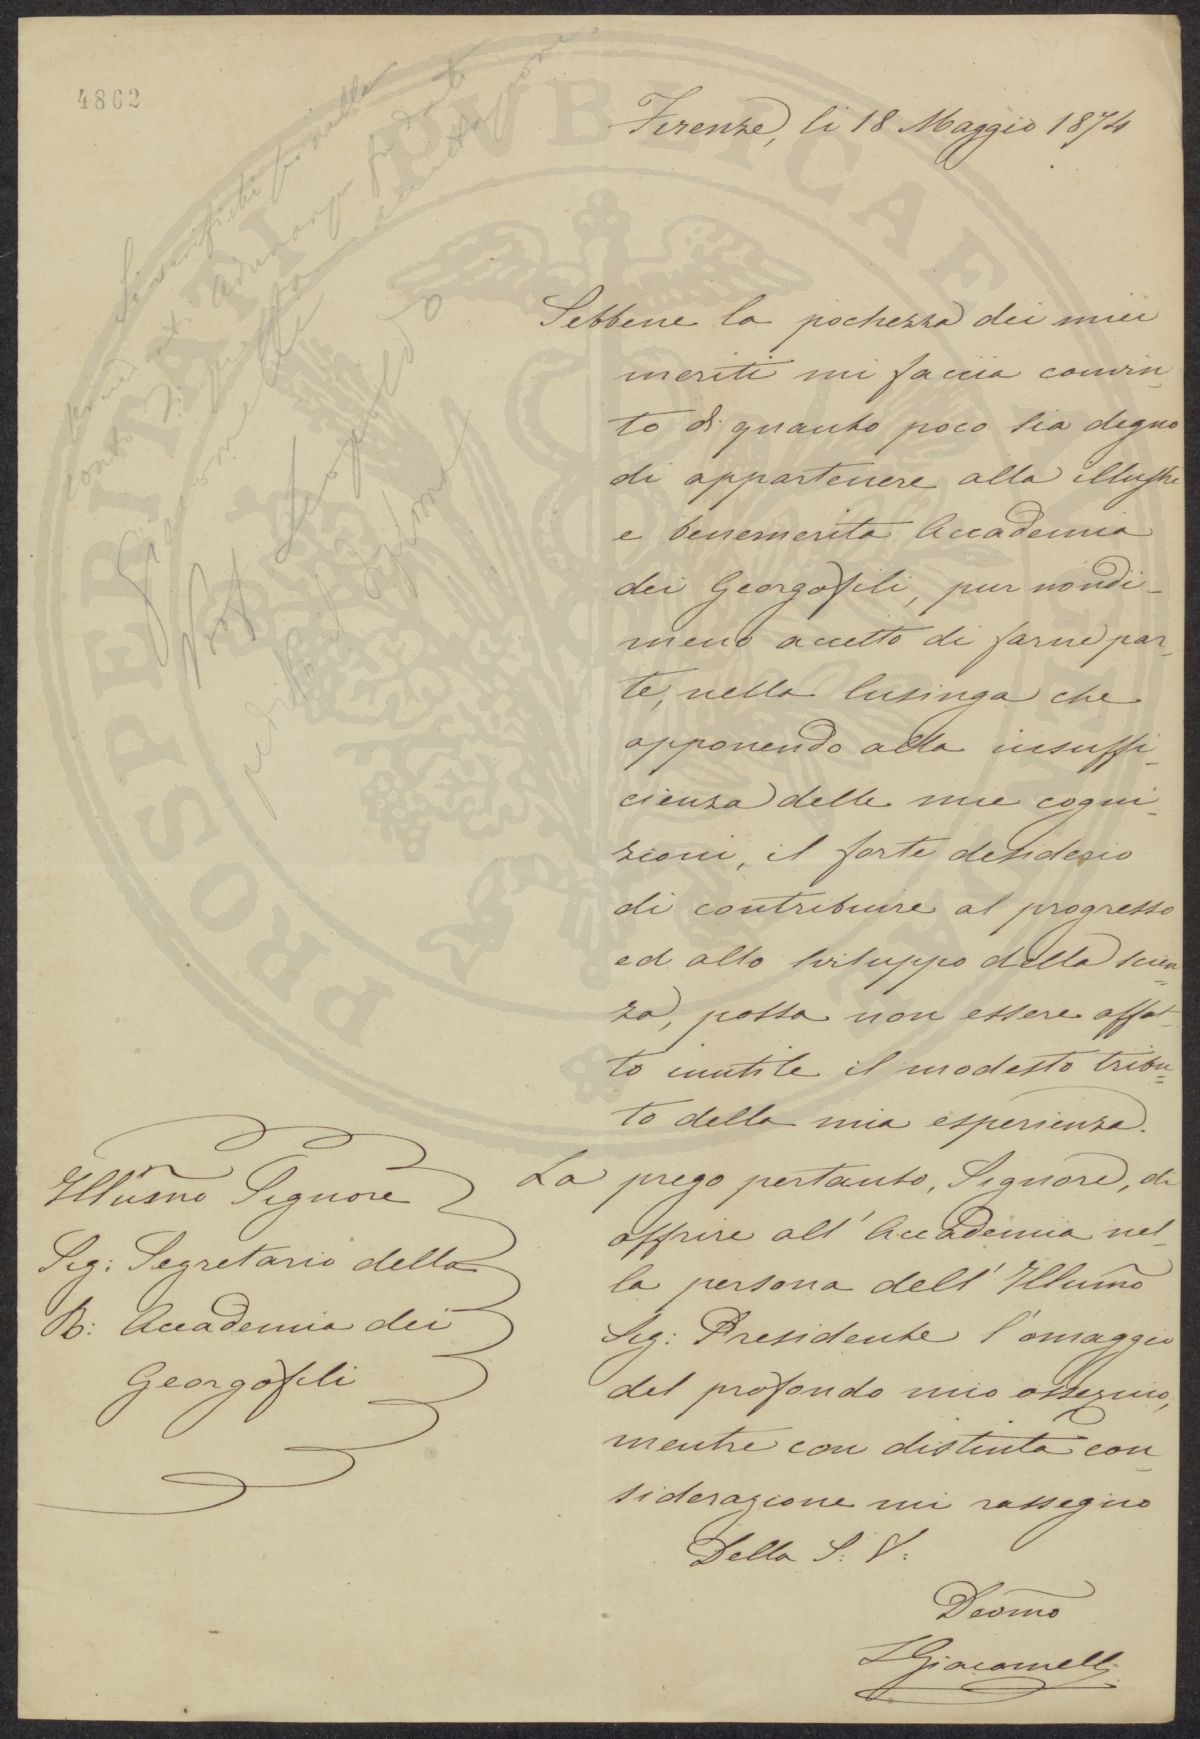 4862
Firenze, li 18 Maggio 1874
Sebbene la pochezza dei miei
meriti mi faccia convin-
to di quanto poco sia degno
di appartenere alla illustre
e benemerita Accademia
dei Georgofili, pur nondi-
meno accetto di farne par-
te, nella lusinga che
opponendo alla insuffi-
cienza delle mie cogni-
zioni, il forte desiderio
di contribuire al progresso
ed allo sviluppo della scien-
za, possa non essere affat-
to inutile il modesto tribu-
to della mia esperienza.
La prego pertanto, Signore, di
offrire all'Accademia nel-
la persona dell'Illumo
Sig: Presidente l'omaggio
del profondo mio ossequio,
mentre con distinta con-
siderazione mi rassegno
Della S: V:
Devmo
LGiacomelli
Illusmo Signore
Sig: Segretario della
R: Accademia dei
Georgofili
adunanza
di questa
Giacomelli
Prof Leopoldo
PROSPERITATI PVBLICAE